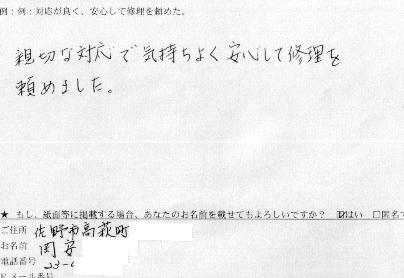 例：例：対応が良く、安心して修理を頼めた。
親切な対応で気持ちよく安心して修理を
頼めました。
★ もし、紙面等に掲載する場合、あなたのお名前を載せてもよろしいですか？ ☑はい □匿名で
ご住所 佐野市高萩町
お名前 岡安
電話番号 23-
Eメール番号